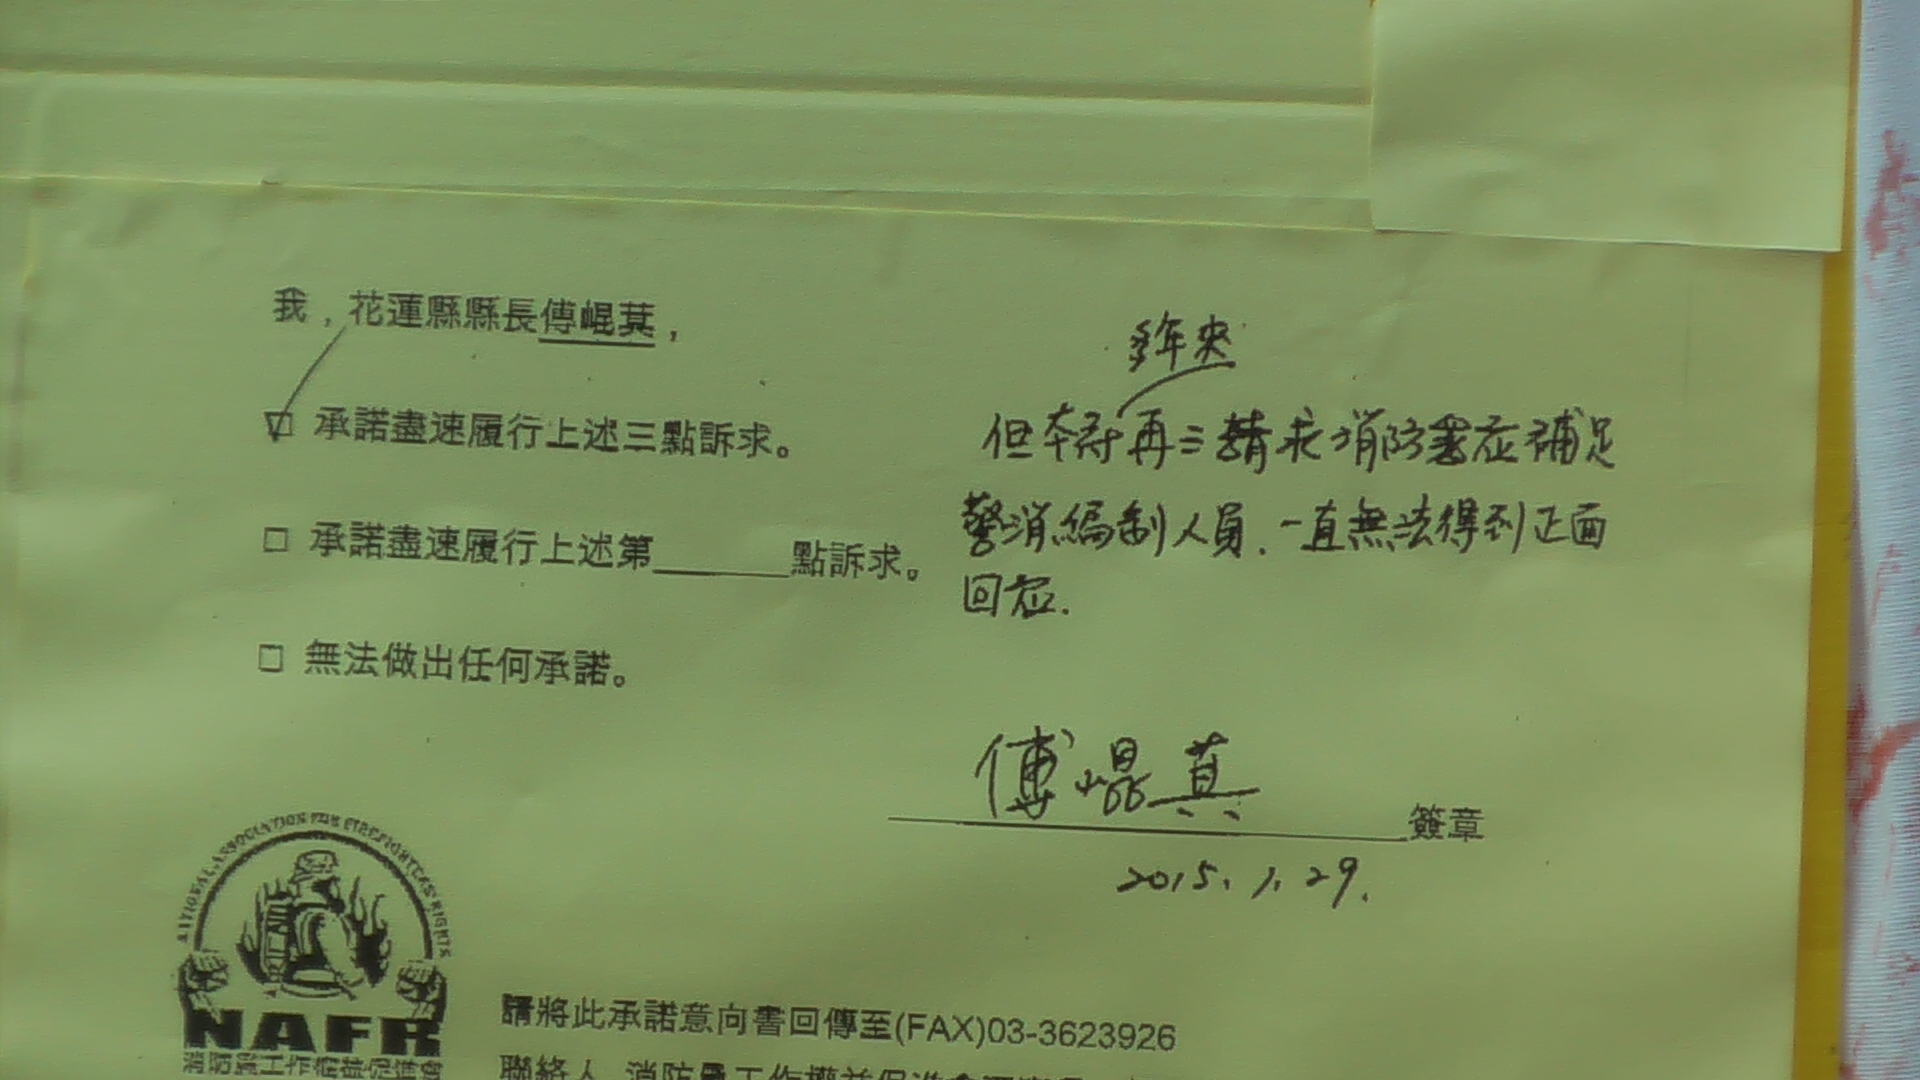 我，花蓮縣縣長傅崐萁，
承諾盡速履行上述三點訴求。
承諾盡速履行上述第______點訴求。
無法做出任何承諾。
多年來
但本府再三請求消防署應補足
警消編制人員.一直無法得到正面
回應.
傅崐萁 簽章
2015.1.29.
NATIONAL ASSOCIATION FOR FIREFIGHTERS' RIGHTS
NAFR
請將此承諾意向書回傳至(FAX)03-3623926
聯絡人 消防員工作權益促進會